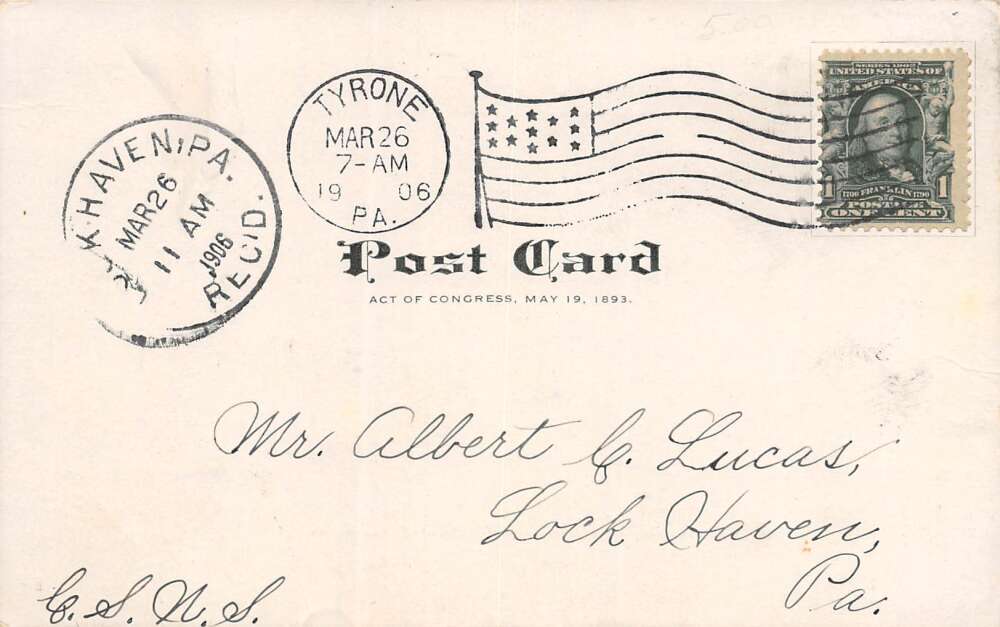 500
TYRONE
MAR 26
7-AM
19 06
PA.
K HAVEN, PA.
MAR 26
11 AM
1906
REC'D.
SERIES 1902
UNITED STATES OF
AMERICA
1 1
1706 FRANKLIN 1790
POSTAGE
ONE CENT
Post Card
ACT OF CONGRESS, MAY 19, 1893.
Mr. Albert C. Lucas,
Lock Haven,
Pa.
C. S. N. S.